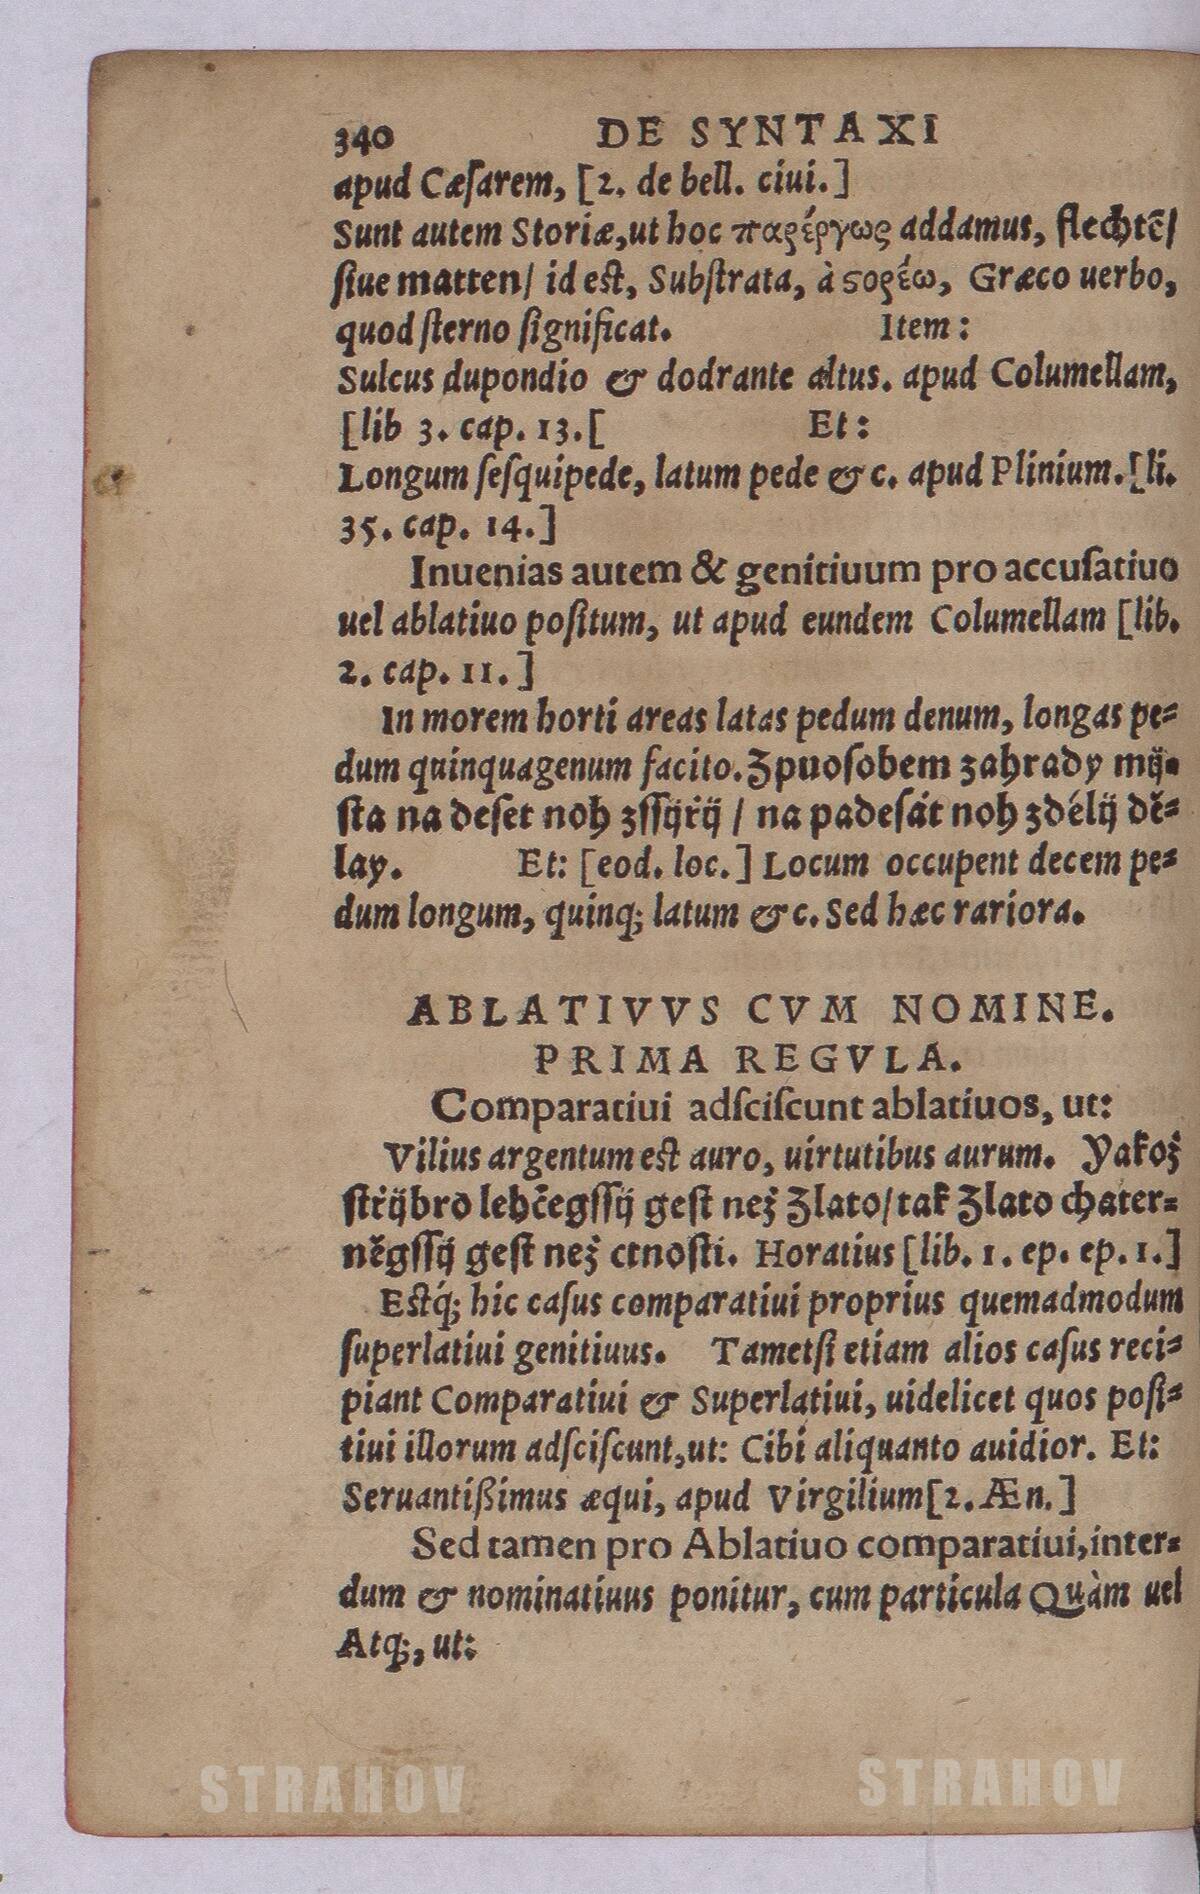 340 DE SYNTAXI
apud Cæſarem, [2. de bell. ciui.]
Sunt autem Storiæ,ut hoc παρέργως addamus, flechtẽ/
ſiue matten/ id eſt, Subſtrata, à ϛορέω, Græco uerbo,
quod ſterno ſignificat. Item:
Sulcus dupondio & dodrante altus. apud Columellam,
[lib 3. cap. 13.[ Et:
Longum ſeſquipede, latum pede & c. apud Plinium.[li.
35. cap. 14.]
Inuenias autem & genitiuum pro accuſatiuo
uel ablatiuo poſitum, ut apud eundem Columellam [lib.
2. cap. 11.]
In morem horti areas latas pedum denum, longas pe=
dum quinquagenum facito. Zpuoſobem zahrady mij=
ſta na deſet noh zſſijřij / na padeſát noh zdélij dě=
lay. Et: [eod. loc.] Locum occupent decem pe=
dum longum, quinq; latum & c. Sed hæc rariora.
ABLATIVVS CVM NOMINE.
PRIMA REGVLA.
Comparatiui adſciſcunt ablatiuos, ut:
Vilius argentum eſt auro, uirtutibus aurum. Yakož
ſtřijbro lehčegſſij geſt než Zlato/tak Zlato chater=
něgſſij geſt než ctnoſti. Horatius [lib. 1. ep. ep. 1.]
Eſtq́; hic caſus comparatiui proprius quemadmodum
ſuperlatiui genitiuus. Tametſi etiam alios caſus reci=
piant Comparatiui & Superlatiui, uidelicet quos poſi=
tiui illorum adſciſcunt,ut: Cibi aliquanto auidior. Et:
Seruantißimus æqui, apud Virgilium[2. Æn.]
Sed tamen pro Ablatiuo comparatiui,inter=
dum & nominatiuus ponitur, cum particula Quàm uel
Atq;, ut:
STRAHOV STRAHOV